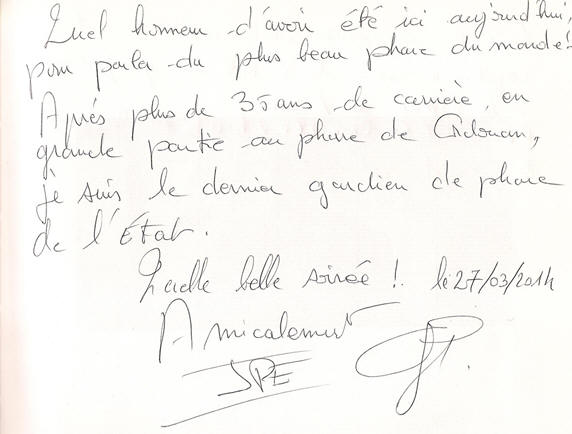 Quel honneur d'avoir été ici aujourd'hui,
pour parler du plus beau phare du monde!
Après plus de 35 ans de carrière, en
grande partie au phare de Cordouan,
je suis le dernier gardien de phare
de l'État.
Quelle belle soirée ! le 27/03/2014
Amicalement
JPE